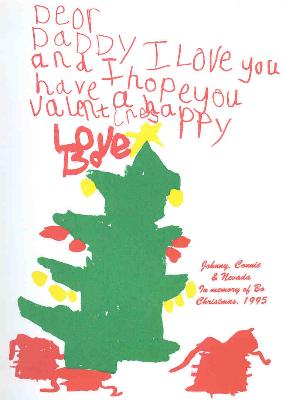 Deor
DaDDy I Love you
and I hope you
have a happy
valentines
Love
Bo
Johnny, Connie
& Nevada
In memory of Bo
Christmas, 1995